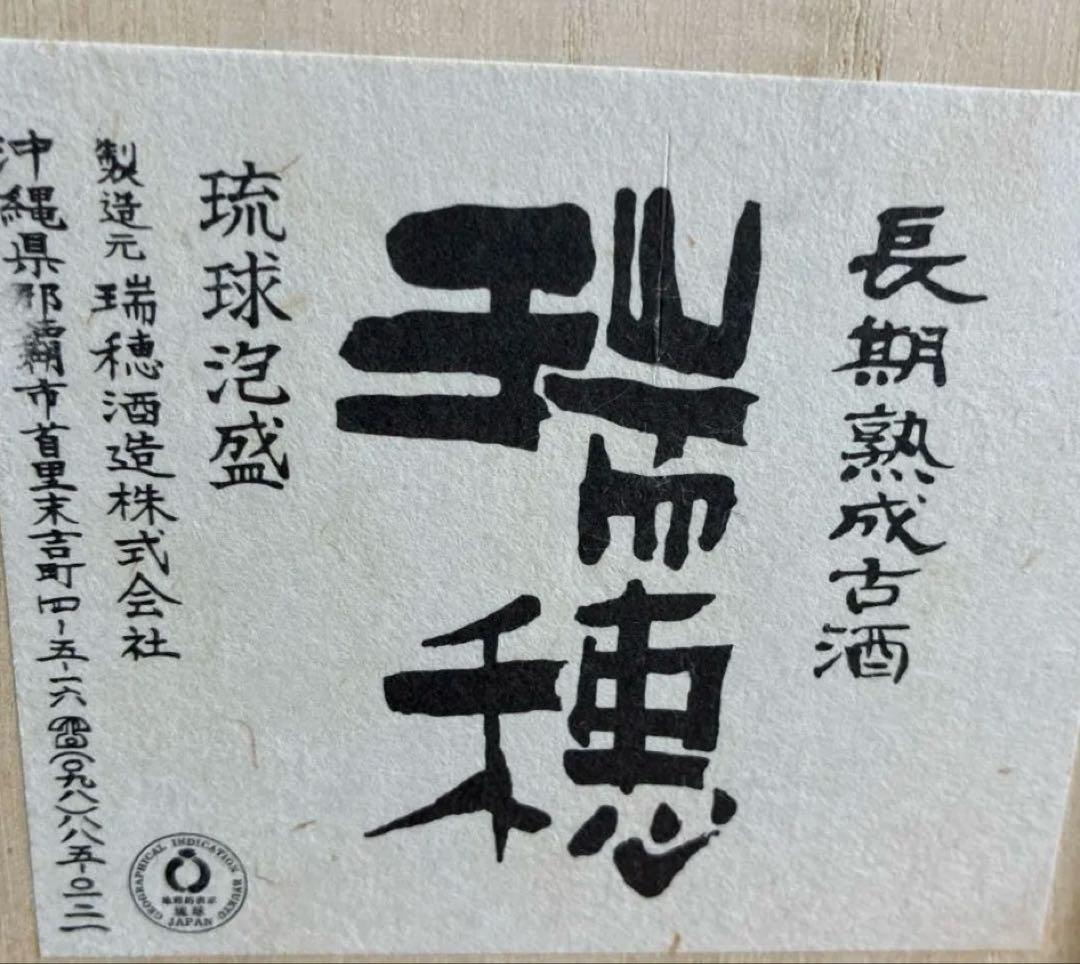 長期熟成古酒
瑞穂
琉球泡盛
製造元 瑞穂酒造株式会社
沖縄県那覇市首里末吉町四-五-一六 電話(〇九八)八八五-〇一二一
GEOGRAPHICAL INDICATION RYUKYU
地理的表示
琉球
JAPAN